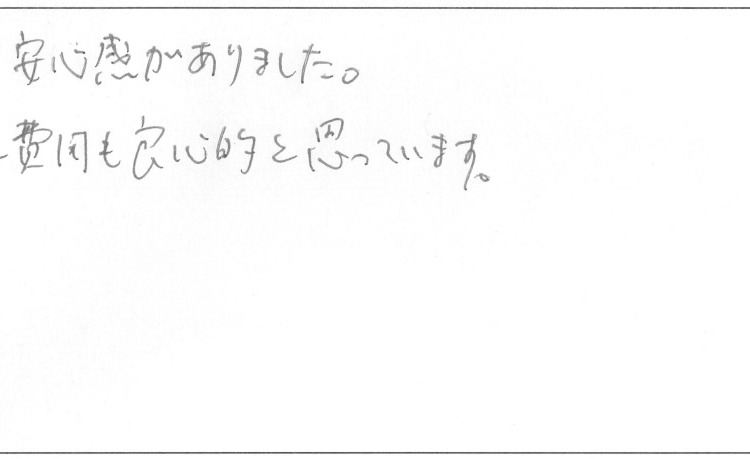 安心感がありました。
費用も良心的と思っています。